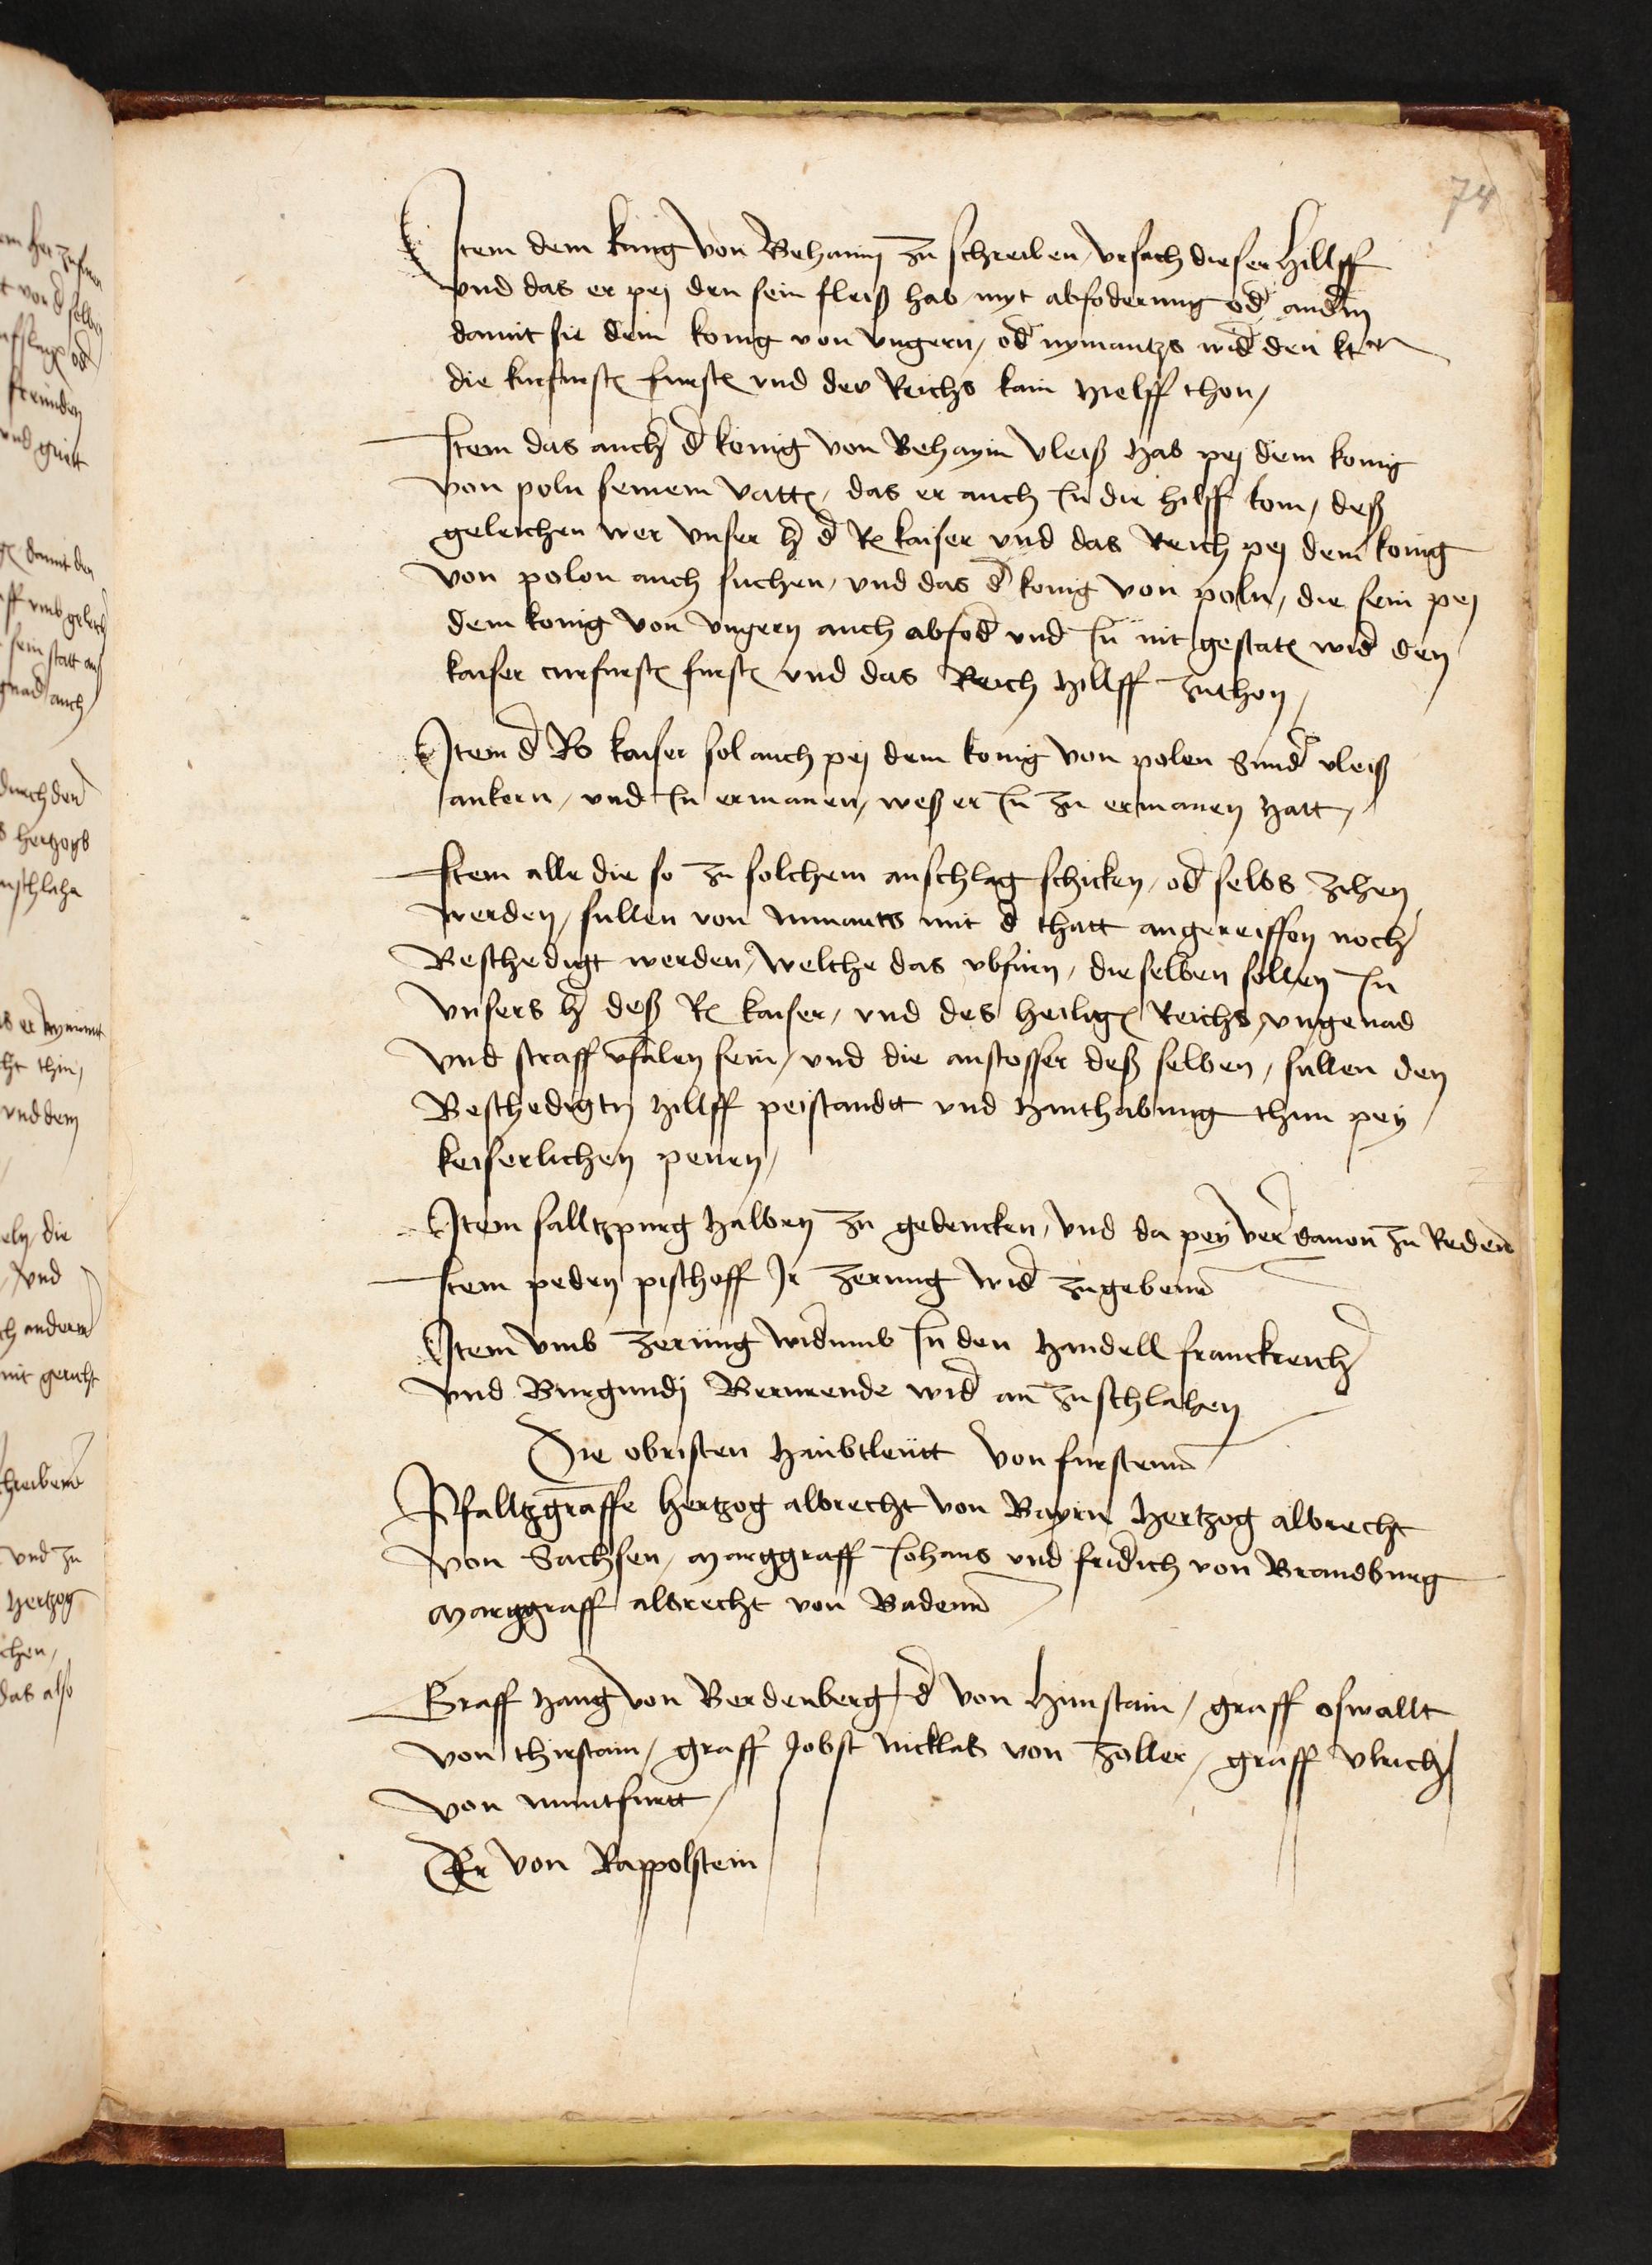 74
Item dem kung von Behaim zu schreiben, vrsach dieser Hillff
vnd das er pej den sein fleiß hab myt abfoderung od andm
damit sie dem konig von vngern, od nymantzs wid den
die kurfurst furst vnd des Reichs kain hielff thon,
Item das auch d konig von Behaym vleiß hab pej dem konig
von poln seinem vatt, das er auch In die hilff kom, deß
geleichen wer vnser h d R kaiser vnd das Reich pej dem konig
von polon auch suchen, vnd das d konig von poln, die sein pej
dem konig von vngern auch abfod vnd In nit gestat wid den
kaiser curfurst furst vnd das Reich Hillff zuthon,
Item d Ro kaiser sol auch pej dem konig von polen Sund vleiß
ankern, vnd In ermanen, weß er In zu ermanen hatt,
Item alle die so zu solchem anschlag schicken, od selbs zihen
werden, sullen von nimants mit d thatt angereiffen noch
Beschedigt werden, welche das vbfurn, dieselben sollen In
vnsers h deß R kaiser, vnd des heilig Reichs, vngenad
vnd straff vfalen sein, vnd die anstosser deß selben, sullen den
Beschedigtn hillff peistandt vnd hanthabung thun pey
keiserlichen penen,
Item salltzpurg halben zu gedencken, vnd da pey ver dauon zu Reden
Item peden pischoff Ir zerung wid zugebenn
Item vmb zerung widumb In den handell franckreich
vnd Burgundj Berurende wid an zuschlahen
Die obristen haubtleutt von furstenn
Pfalltzgraffe hertzog albrecht von Bayrn hertzog albrecht
von Sachsen, marggraff Johans vnd fridich von Brandburg
marggraff albrecht von Badenn
Graff haug von Berdenberg, d von himstain, graff oswallt
von thirstain, graff Jobst nicklas von zoller, graff vlrich
von muntfurtt,
Er von Rappolstein